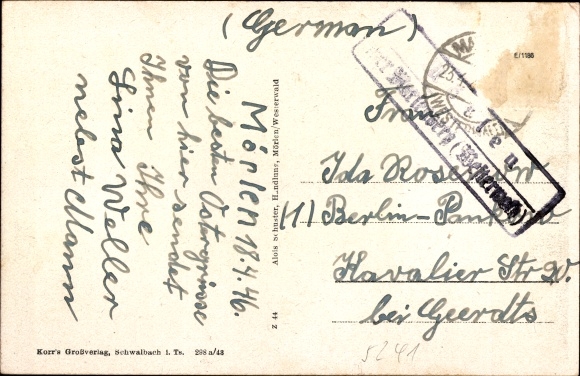 (German)
Mörlen 18.4.46.
Die besten Ostergrüsse
von hier sendet
Ihnen Ihre
Lina Weller
nebst Mann
Alois Schuster, Handlung, Mörlen/Westerwald
Z 44
Korr's Großverlag, Schwalbach i. Ts. 298 a/43
E/1186
MA
(Westerwald)
Frau
Ida Rosenow
(1) Berlin-Pankow
Kavalier Str 20.
bei Geerdts
5241